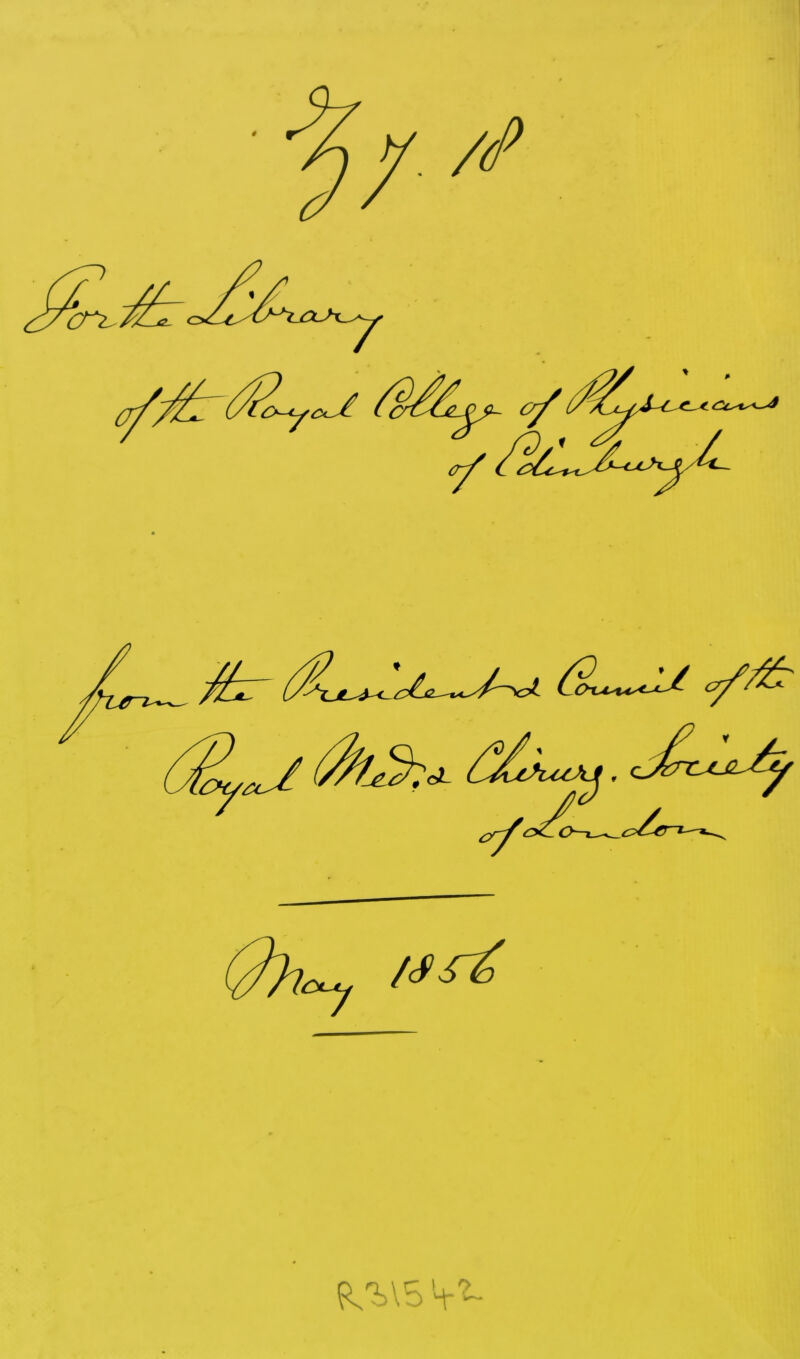 7. 18
For the Library
of the Royal College of Physicians
of Edinburgh
from the President & Council of the
Royal Med: & Chirurg. Society
of London
May 1856
R31542